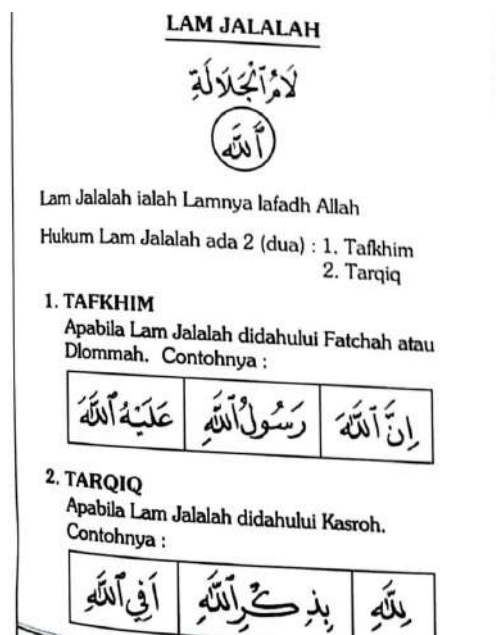 LAM JALALAH
لَامُ ٱلْجَلَالَةِ
ٱللَّه
Lam Jalalah ialah Lamnya lafadh Allah
Hukum Lam Jalalah ada 2 (dua) : 1. Tafkhim
2. Tarqiq
1. TAFKHIM
Apabila Lam Jalalah didahului Fatchah atau
Dlommah. Contohnya :
اِنَّ ٱللَّهَ رَسُولُ ٱللَّهِ عَلَيْهُ ٱللَّهَ
2. TARQIQ
Apabila Lam Jalalah didahului Kasroh.
Contohnya :
لِلَّهِ بِذِكْرِ ٱللَّهِ اَفِي ٱللَّهِ